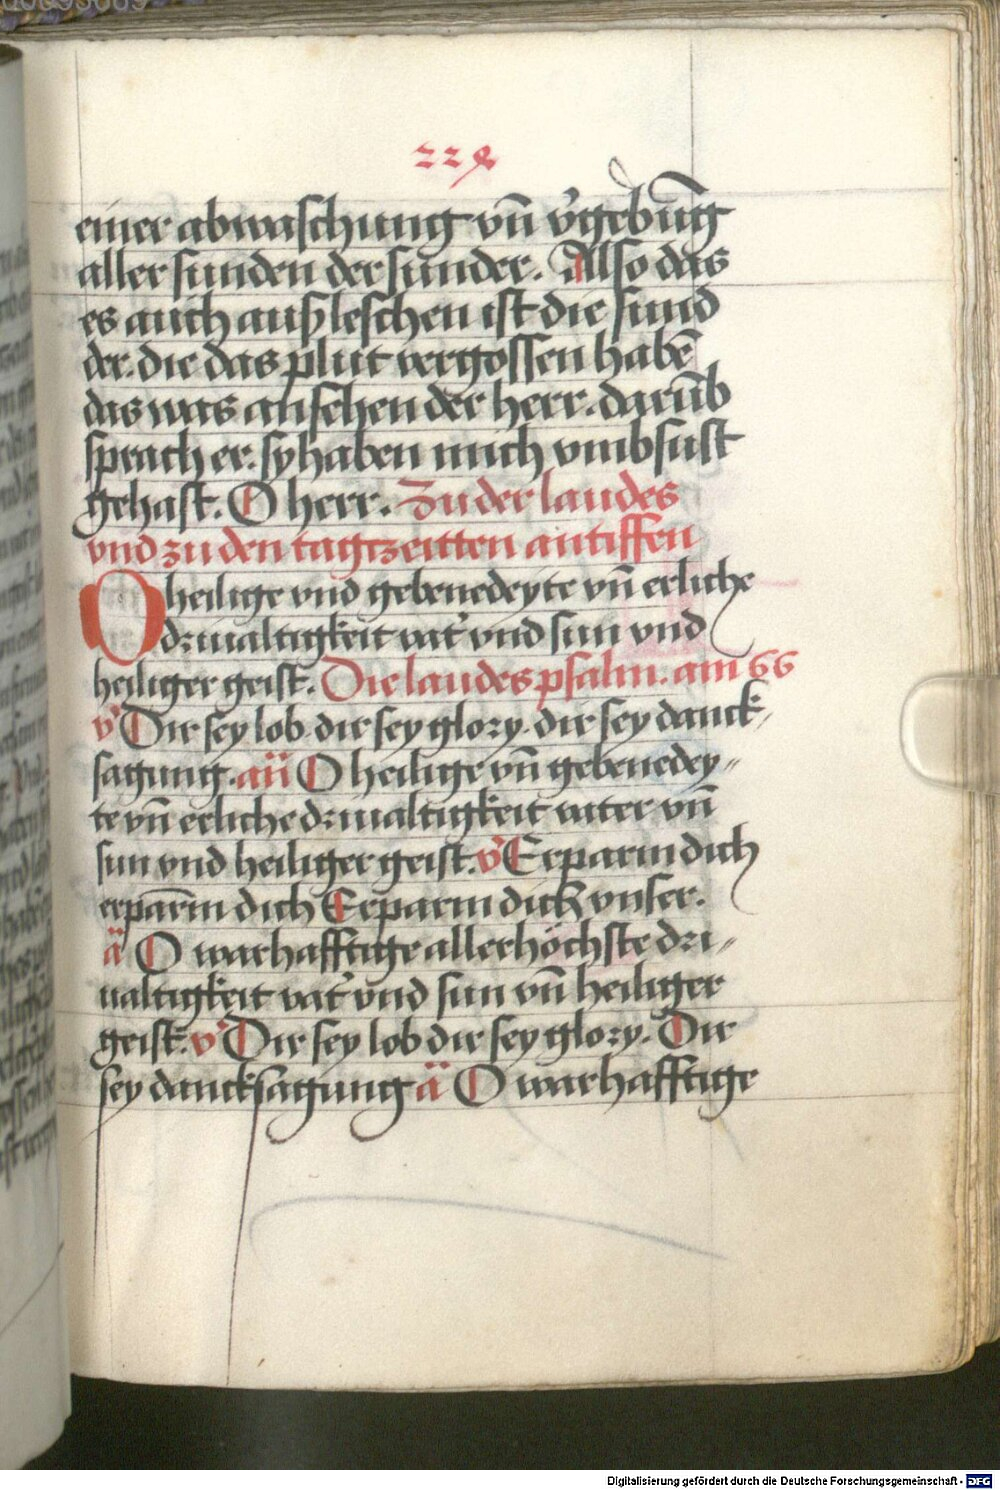 224
einer abwaschung vn̄ v͛gebūg
aller sunden der sunder. Also das
es auch auß leschen ist die sund
der. die das plut vergossen habē
das was ansehen der herr. darūb
sprach er. sy haben mich vmbsust
gehast. O herr. Zu der laudes
vnd zu den tagtzeitten antiffen
O heilige vnd gebenedeyte vn̄ erliche
driualtigkeit vat͛ vnd sun vnd
heiliger geist. Die laudes psalm. am 66
v͛ Dir sey lob dir sey glory. dir sey danck-
sagung. an̄ O heilige vn̄ gebenedey-
te vn̄ erliche driualtigkeit vater vn̄
sun vnd heiliger geist. v͛ Erparm dich
erparm̄ dich Erparm dich vnser.
a̅ O warhafftige allerhöchste dri-
ualtigkeit vat͛ vnd sun vn̄ heiliger
geist. v͛ Dir sey lob dir sey glory. Dir
sey dancksagung a̅ O warhafftige
Digitalisierung gefördert durch die Deutsche Forschungsgemeinschaft - DFG